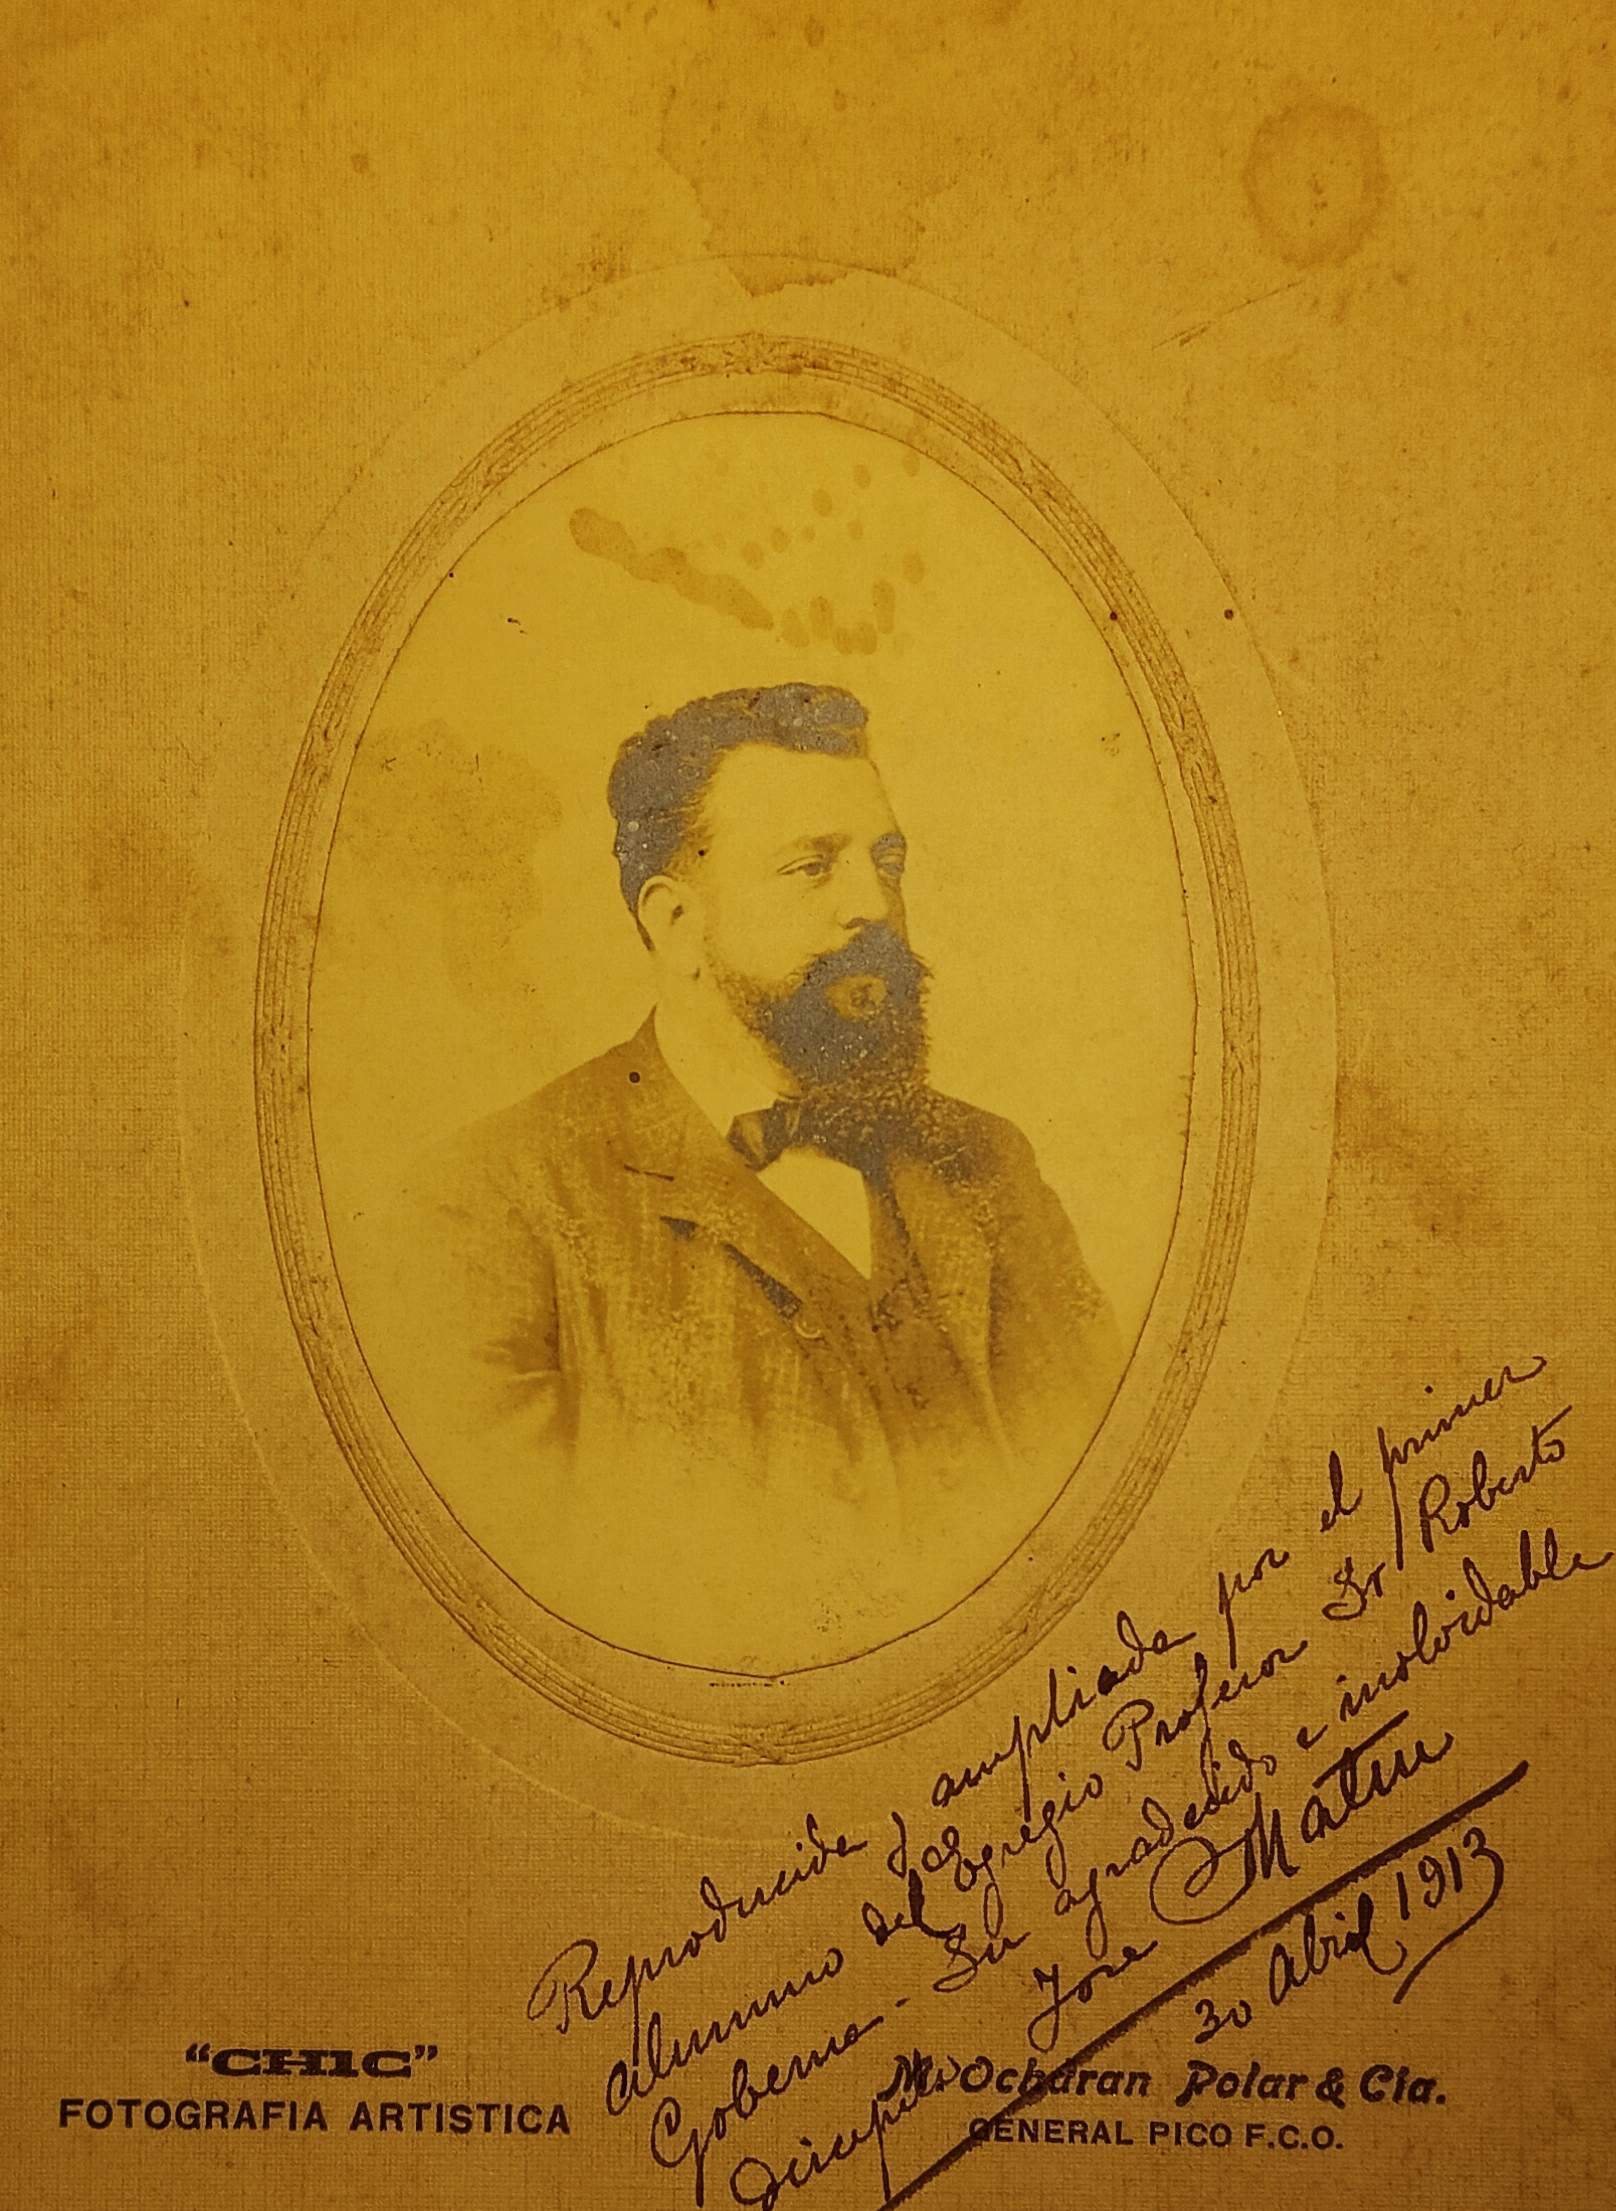 Reproducida y ampliada por el primer
alumno del Egregio Profesor Sr Roberto
Goberna - Su agradecido e inolvidable
discipulo Jose Matu
30 Abril 1913
"CHIC"
FOTOGRAFIA ARTISTICA
M. Ocharan Polar & Cia.
GENERAL PICO F.C.O.